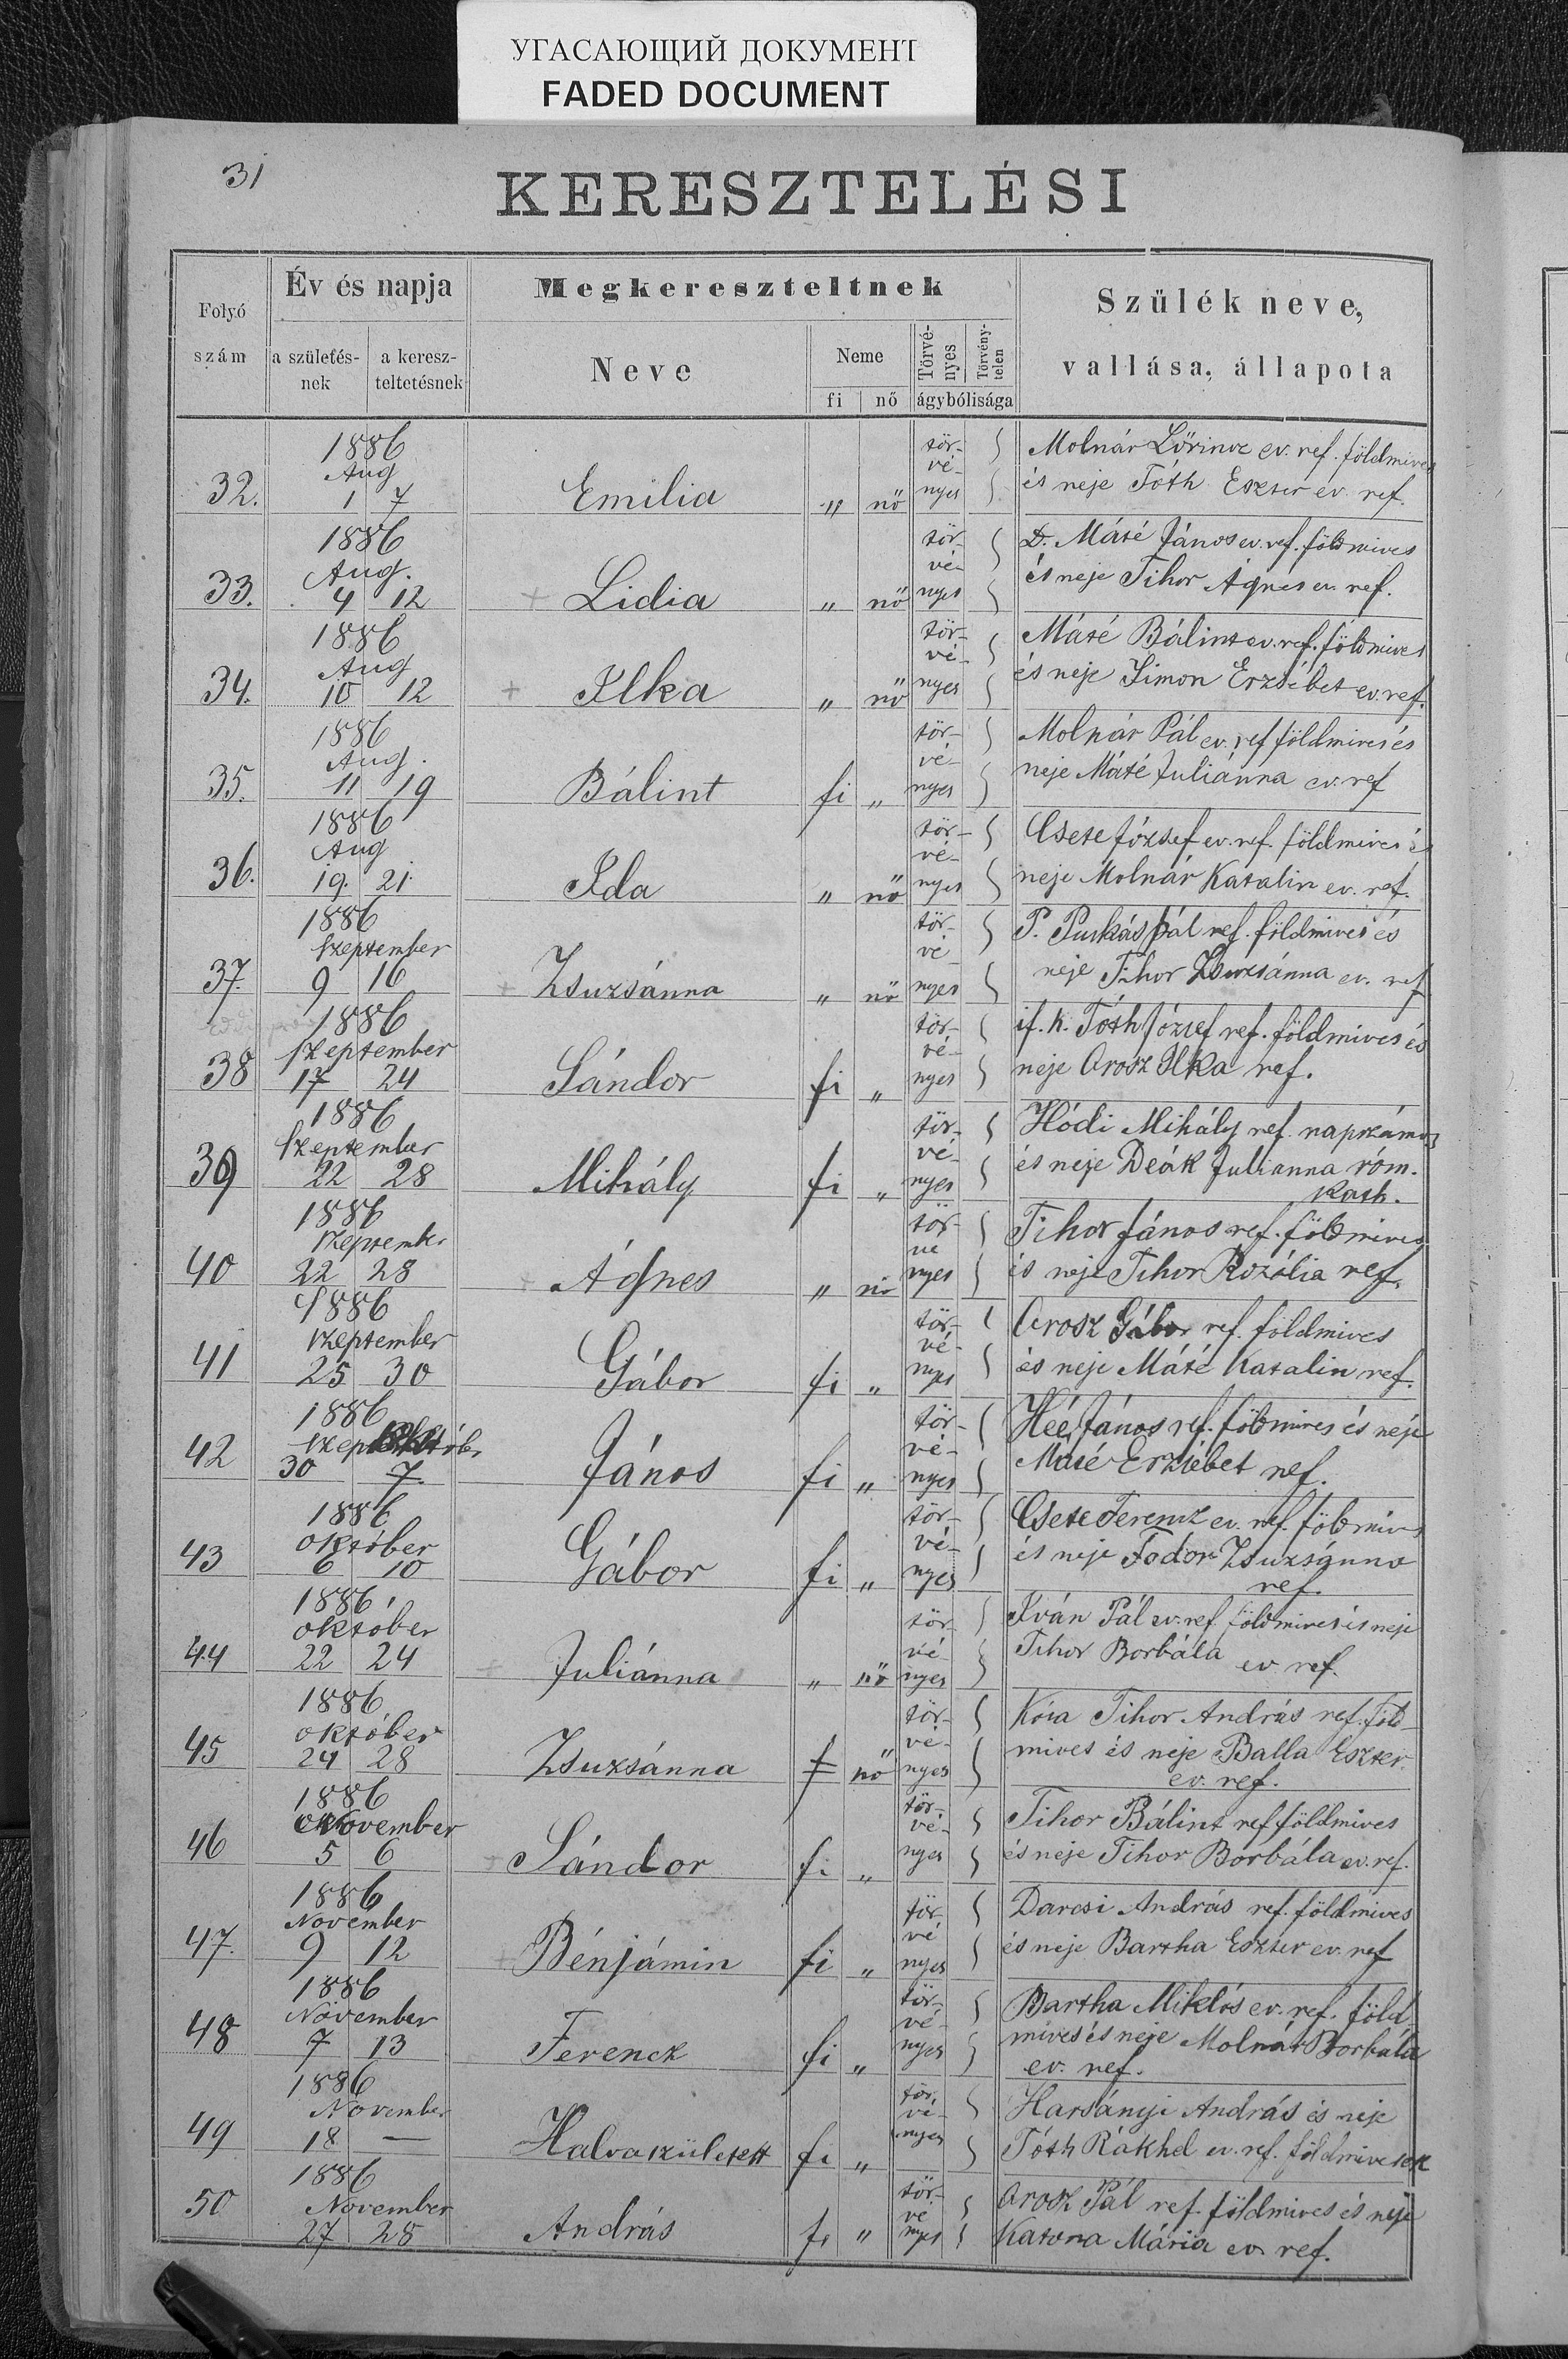 УГАСАЮЩИЙ ДОКУМЕНТ
FADED DOCUMENT
31
KERESZTELÉSI
Folyó szám
Év és napja
a születés-nek
a keresz-teltetésnek
Megkereszteltnek
Neve
Neme
fi nő
Törvé-nyes
Törvény-telen
ágybólisága
Szülék neve,
vallása, állapota
1886
Aug
32. 1 7 Emilia " nő tör-vé-nyes
Molnár Lőrincz ev. ref. földmives
és neje Tóth Eszter ev. ref.
1886
Aug.
33. 4 12 + Lidia " nő tör-vé-nyes
D. Máté János ev. ref. földmives
és neje Tihor Ágnes ev. ref.
1886
Aug
34. 10 12 + Ilka " nő tör-vé-nyes
Máté Bálint ev. ref. földmives
és neje Simon Erzsébet ev. ref.
1886
Aug.
35. 11 19 Bálint fi " tör-vé-nyes
Molnár Pál ev. ref földmives és
neje Máté Juliánna ev. ref
1886
Aug
36. 19. 21. Ida " nő tör-vé-nyes
Csete József ev. ref. földmives é
neje Molnár Katalin ev. ref.
1886
Szeptember
37. 9 16 + Zsuzsánna " nő tör-vé-nyes
P. Puskás Pál ref. földmives és
neje Tihor Zsuzsánna ev. ref
1886
Szeptember
38 17 24 Sándor fi " tör-vé-nyes
if. k. Tóth József ref. földmives és
neje Orosz Ilka ref.
1886
Szeptember
39 22 28 Mihály fi " tör-vé-nyes
Hódi Mihály ref. napszámos
és neje Deák Julianna róm.
kath.
1886
Szeptember
40 22 28 + Ágnes " nő tör-vé-nyes
Tihor János ref. földmives
és neje Tihor Rozália ref.
1886
Szeptember
41 25 30 Gábor fi " tör-vé-nyes
Orosz Gábor ref. földmives
és neje Máté Katalin ref.
1886
Szept Októb.
42 30 7. János fi " tör-vé-nyes
Héé János ref. földmives és neje
Máté Erzsébet ref.
1886
október
43 6 10 Gábor fi " tör-vé-nyes
Csete Ferencz ev. ref. földmives
és neje Fodor Zsuzsánna
ref.
1886
október
44 22 24 + Juliánna " nő tör-vé-nyes
Iván Pál ev. ref. földmives és neje
Tihor Borbála ev. ref.
1886
október
45 24 28 Zsuzsánna f nő tör-vé-nyes
Kósa Tihor András ref. föld-
mives és neje Balla Eszter.
ev. ref.
1886
November
46 5 6 + Sándor fi " tör-vé-nyes
Tihor Bálint ref földmives
és neje Tihor Borbála ev. ref.
1886
November
47. 9 12 + Bénjámin fi " tör-vé-nyes
Darcsi András ref. földmives
és neje Bartha Eszter ev. ref
1886
November
48 7 13 Ferenck fi " tör-vé-nyes
Bartha Miklós ev. ref. föld
mives és neje Molnár Borbála
ev. ref.
1886
November
49 18 — Halva született fi " tör-vé-nyes
Harsányi András és neje
Tóth Rákhel ev. ref. földmivesek
1886
November
50 27 28 András fi " tör-vé-nyes
Orosz Pál ref. földmives és neje
Katona Mária ev. ref.